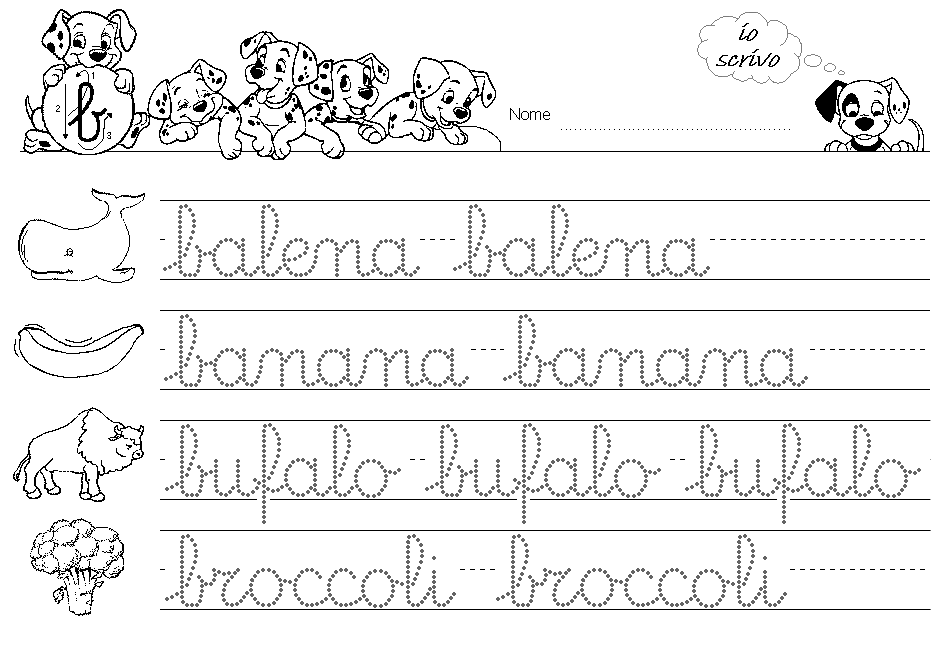 io
scrivo
b
1
2
3
Nome
balena balena
banana banana
bufalo bufalo bufalo
broccoli broccoli